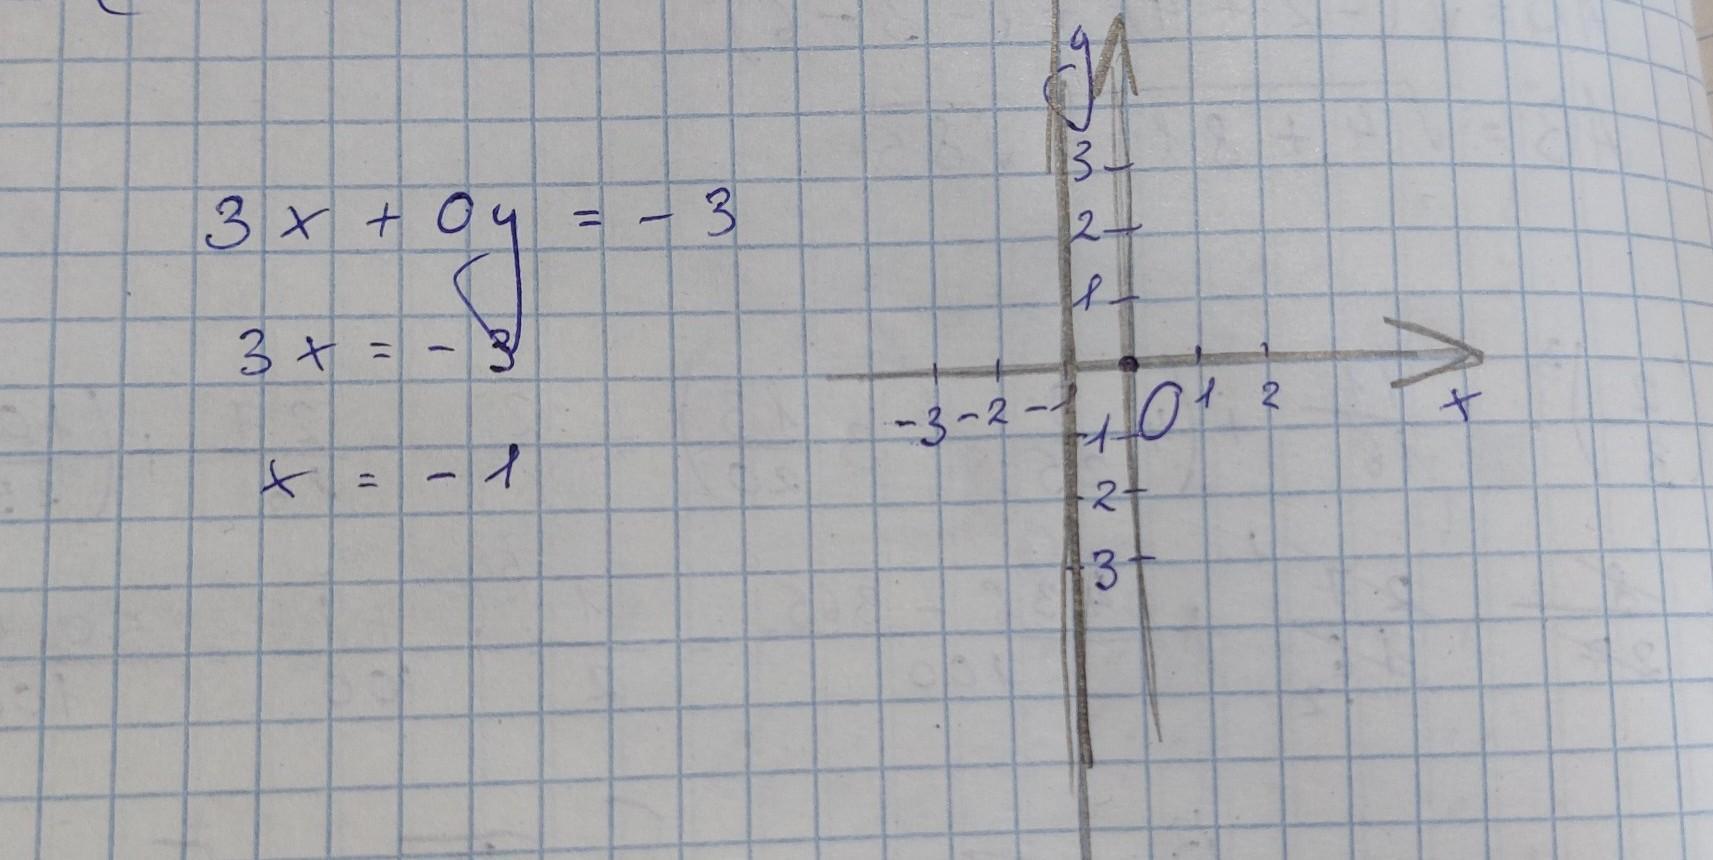 3x + 0y = - 3
3x = - 3
x = - 1
y
3
2
1
-3 -2 -1 0 1 2 x
-1
-2
-3